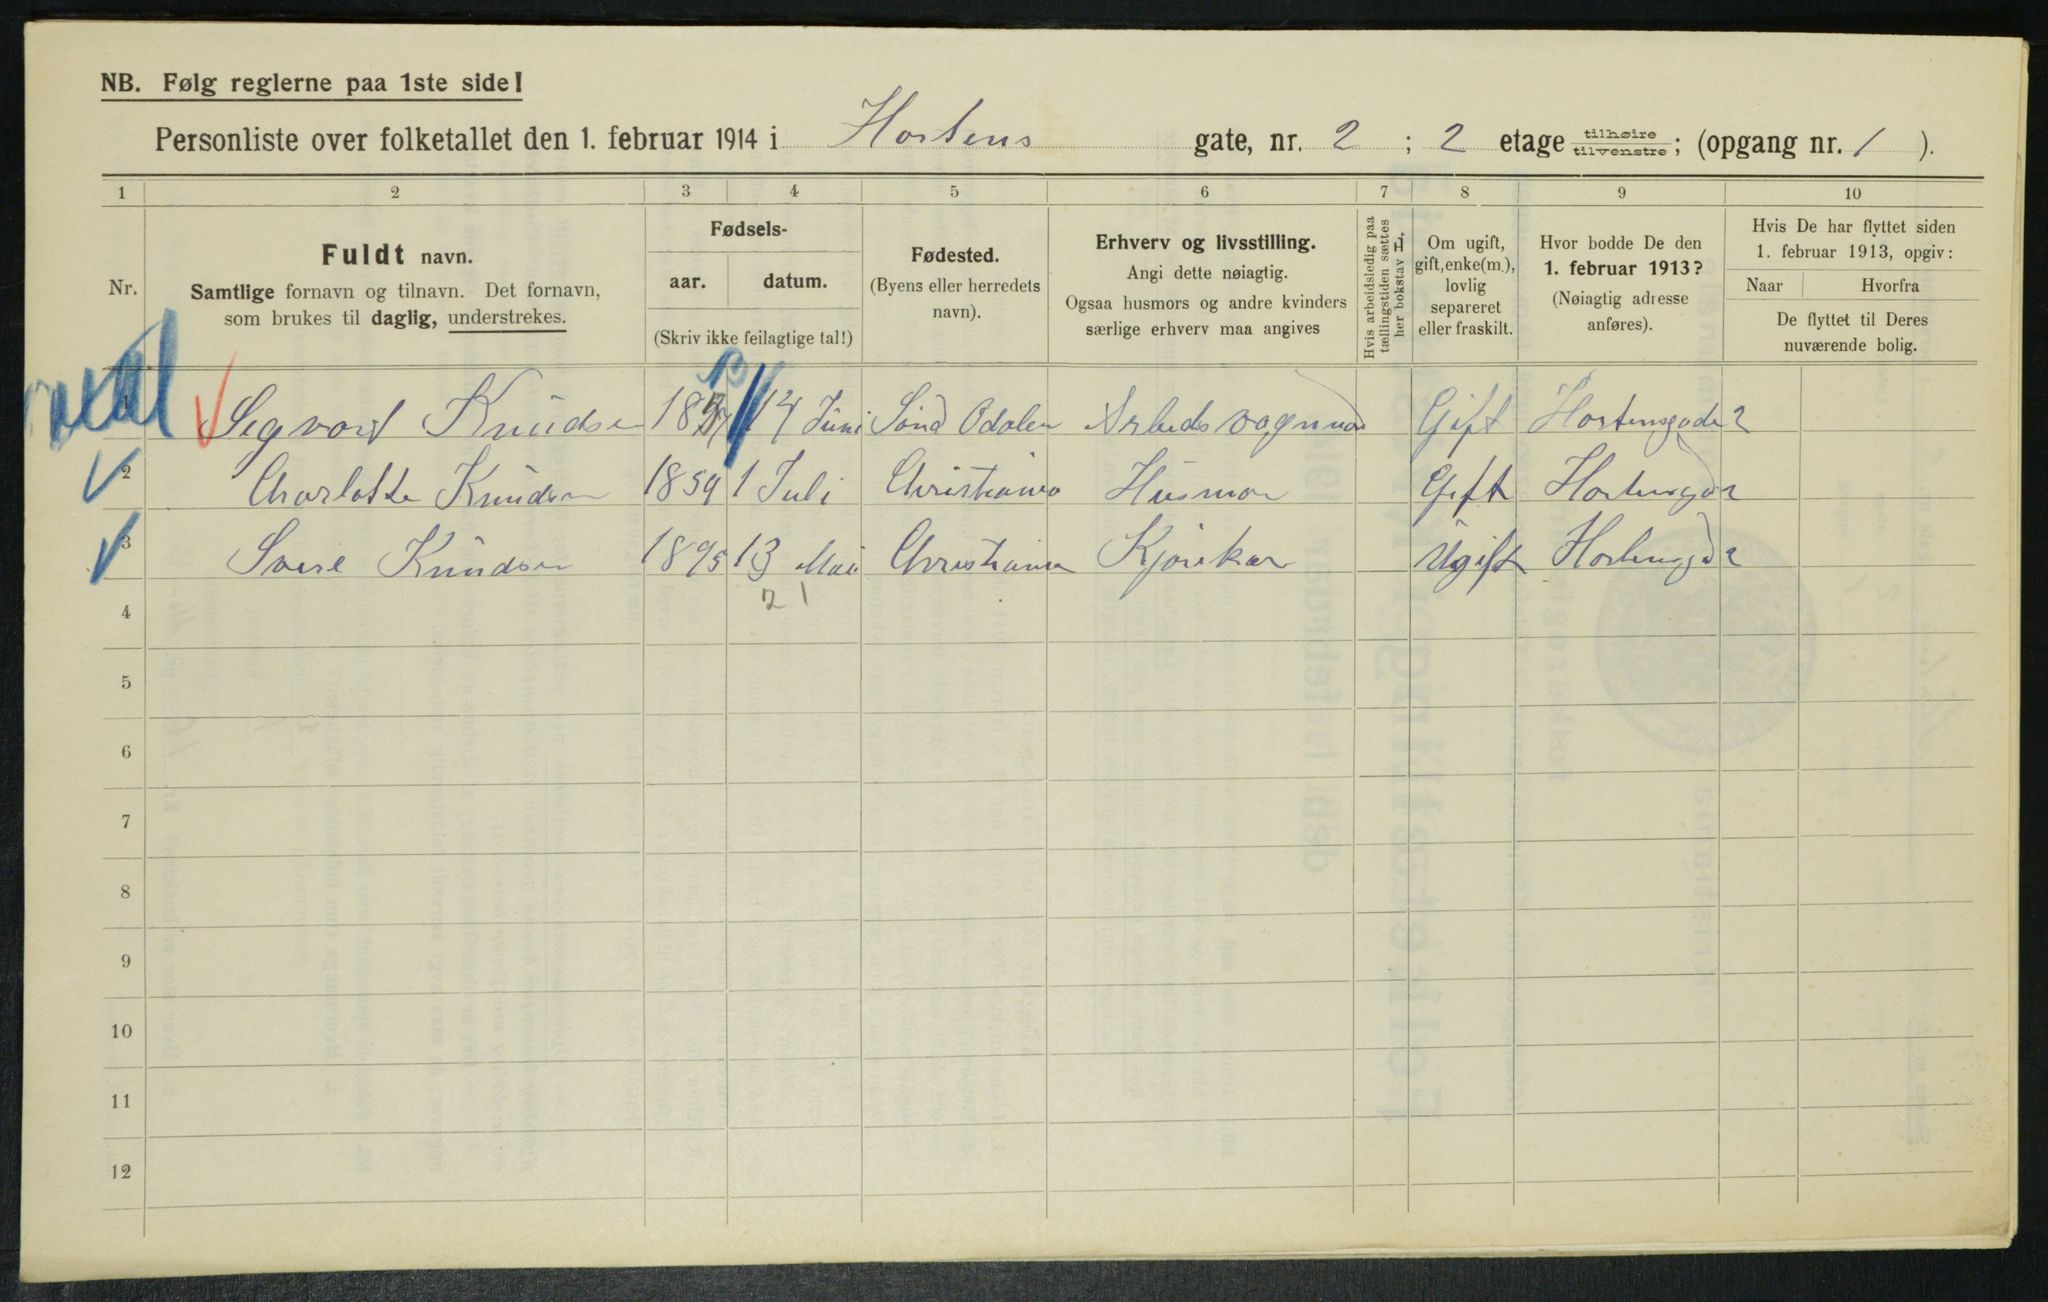 NB. Følg reglerne paa 1ste side!
Personliste over folketallet den 1. februar 1914 i Hortens gate, nr. 2 ; 2 etage tilhøire tilvenstre; (opgang nr. 1 ).
1 2 3 4 5 6 7 8 9 10
Nr.
Fuldt navn.
Samtlige fornavn og tilnavn. Det fornavn,
som brukes til daglig, understrekes.
Fødsels-
aar. datum.
(Skriv ikke feilagtige tal!)
Fødested.
(Byens eller herredets
navn).
Erhverv og livsstilling.
Angi dette nøiagtig.
Ogsaa husmors og andre kvinders
særlige erhverv maa angives
Hvis arbeidsledig paa
tællingstiden sættes
her bokstav H.
Om ugift,
gift, enke(m.),
lovlig
separeret
eller fraskilt.
Hvor bodde De den
1. februar 1913?
(Nøiagtig adresse
anføres).
Hvis De har flyttet siden
1. februar 1913, opgiv:
Naar Hvorfra
De flyttet til Deres
nuværende bolig.
1 Sigvart Knudsen 14 Juni Sønd Odalen Arbeidsvognmand Gift Hortensgade 2
2 Charlotte Knudsen 1859 1 Juli Christiania Husmor Gift Hortensgd 2
3 Knudsen 1895 13 Mai Christiania Kjørekar Ugift Hortensgd 2
21
4
5
6
7
8
9
10
11
12